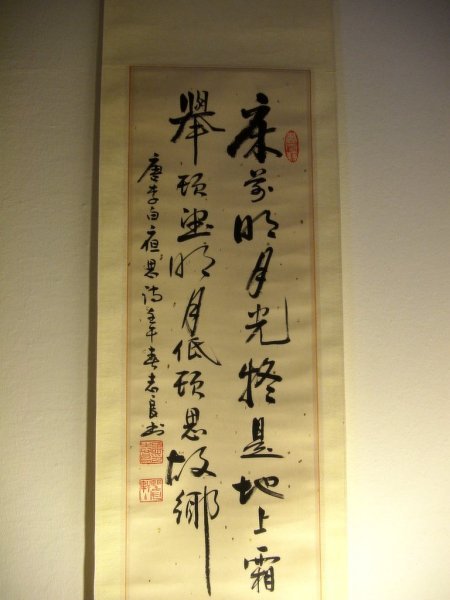 床前明月光疑是地上霜
舉頭望明月低頭思故鄉
唐李白夜思詩壬午春志良书